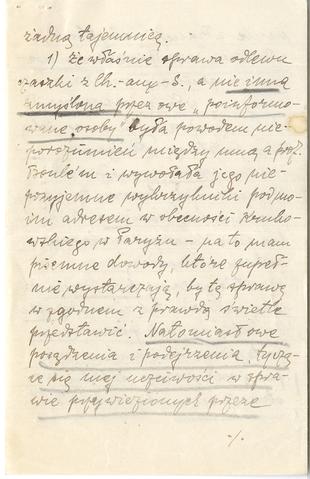 żadną tajemnicą.
1) że właśnie sprawa odlewu
czaszki z Ch.-aux-S., a nie inna
zmyślona przez owe „poinformo-
wane osoby” była powodem nie-
porozumień między mną a prof.
i wywołała jego nie-
przyjemne wykrzykniki pod mo-
im adresem w obecności Kruko-
wskiego w Paryżu – na to mam
piśmienne dowody, które zupeł-
nie wystarczają, by tę sprawę
w zgodnem z prawdą świetle
przedstawić. Natomiast owe
posądzenia i podejrzenia, tyczą-
ce się mej uczciwości w spra-
wie przywiezionych przeze
./.